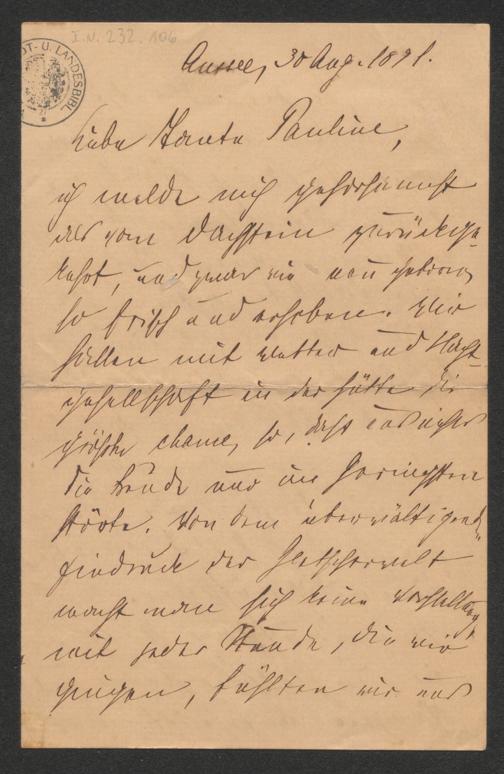 I.N. 232.106
DT- U. LANDESBIBL
Aussee, 30 Aug. 1891.
Liebe Tante Pauline,
ich melde mich gehorsamst
als vom Dachstein zurückge-
kehrt, und zwar wie neu geboren,
so frisch und erhoben. Wir
hatten mit Wetter und Nacht-
gesellschaft in der Hütte die
größte chance, so, daß uns nichts
die Freude nur im Geringsten
störte. Von dem überwältigend
Eindruck der Gletscherwelt
macht man sich keine Vorstellung,
mit jeder Stunde, die wir
gingen, fühlten wir uns